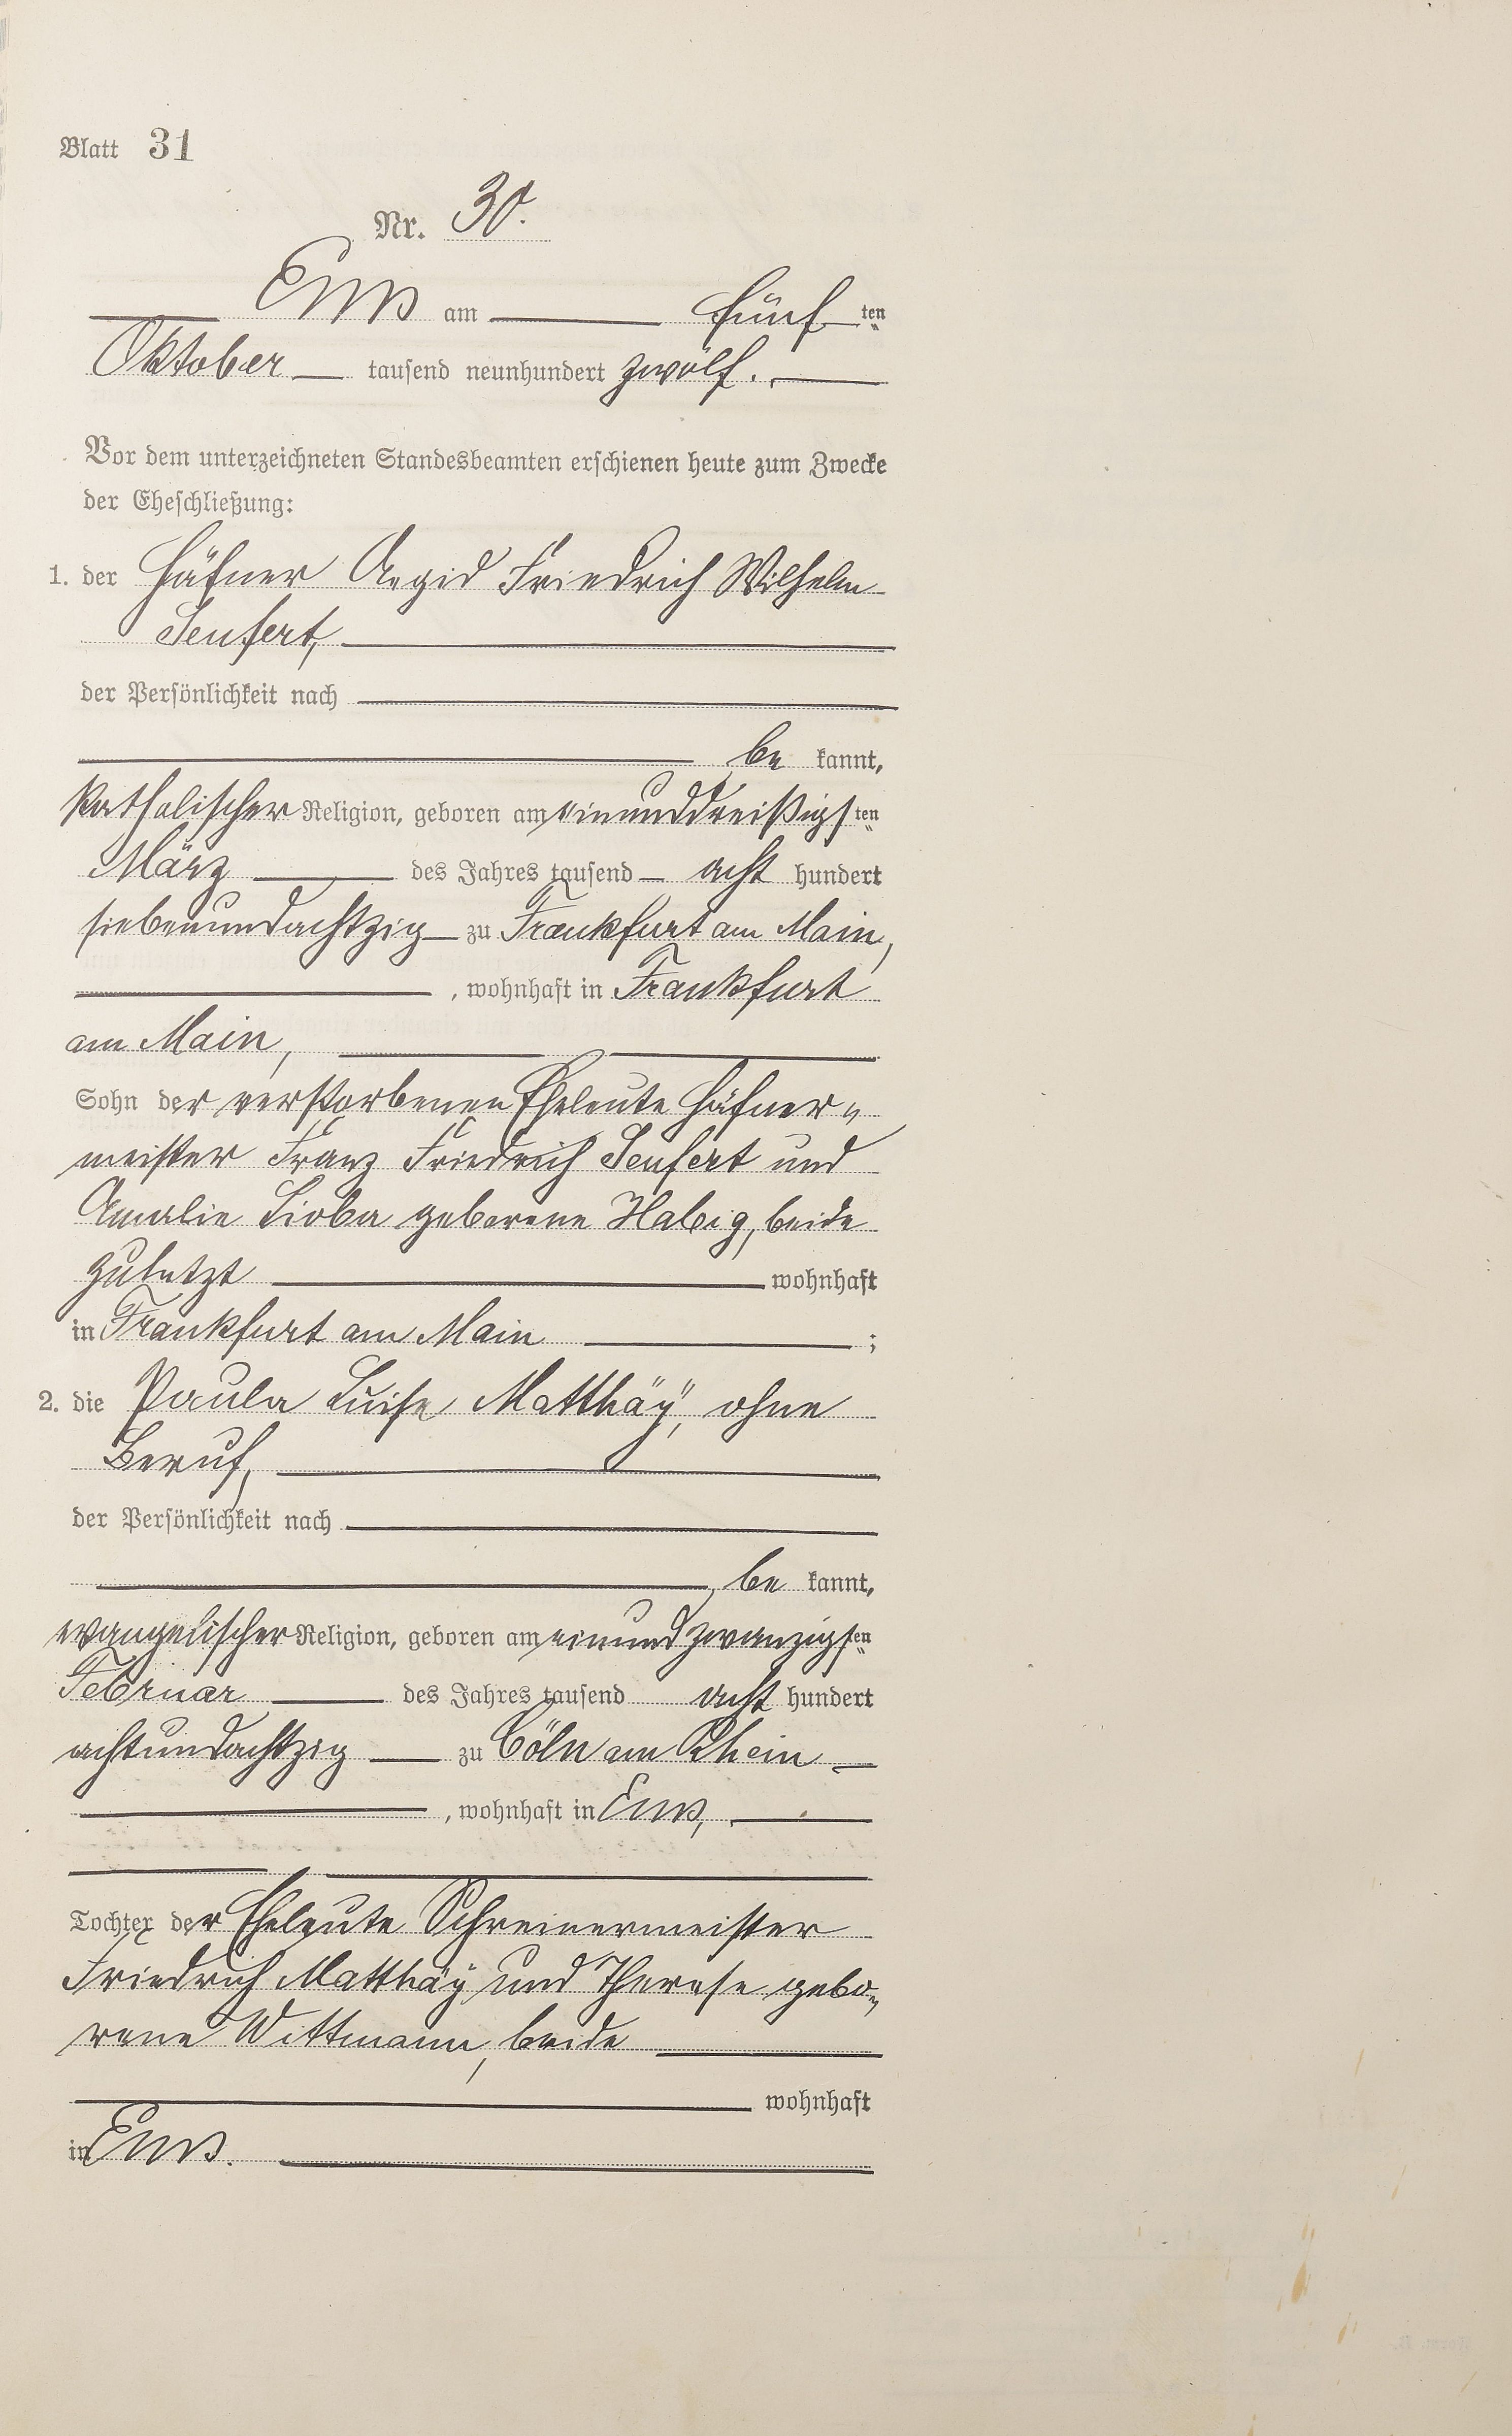 Blatt 31
Nr. 30.
Ems am fünf ten
Oktober tausend neunhundert zwölf.
Vor dem unterzeichneten Standesbeamten erschienen heute zum Zwecke
der Eheschließung:
1. der Häfner Aegid Friedrich Wilhelm
Seufert,
der Persönlichkeit nach
be kannt,
katholischer Religion, geboren am einunddreißigsten
März des Jahres tausend acht hundert
siebenundachtzig zu Frankfurt am Main,
, wohnhaft in Frankfurt
am Main,
Sohn der verstorbenen Eheleute Häfner-
meister Franz Friedrich Seufert und
Amalie Lioba geborene Habig, beide
zuletzt wohnhaft
in Frankfurt am Main ;
2. die Paula Luise Matthäÿ, ohne
Beruf,
der Persönlichkeit nach
be kannt,
evangelischer Religion, geboren am einundzwanzigsten
Februar des Jahres tausend acht hundert
achtundachtzig zu Cöln am Rhein
, wohnhaft in Ems,
Tochter der Eheleute Schreinermeister
Friedrich Matthäÿ und Therese gebo-
rene Wittmann, beide
wohnhaft
in Ems.